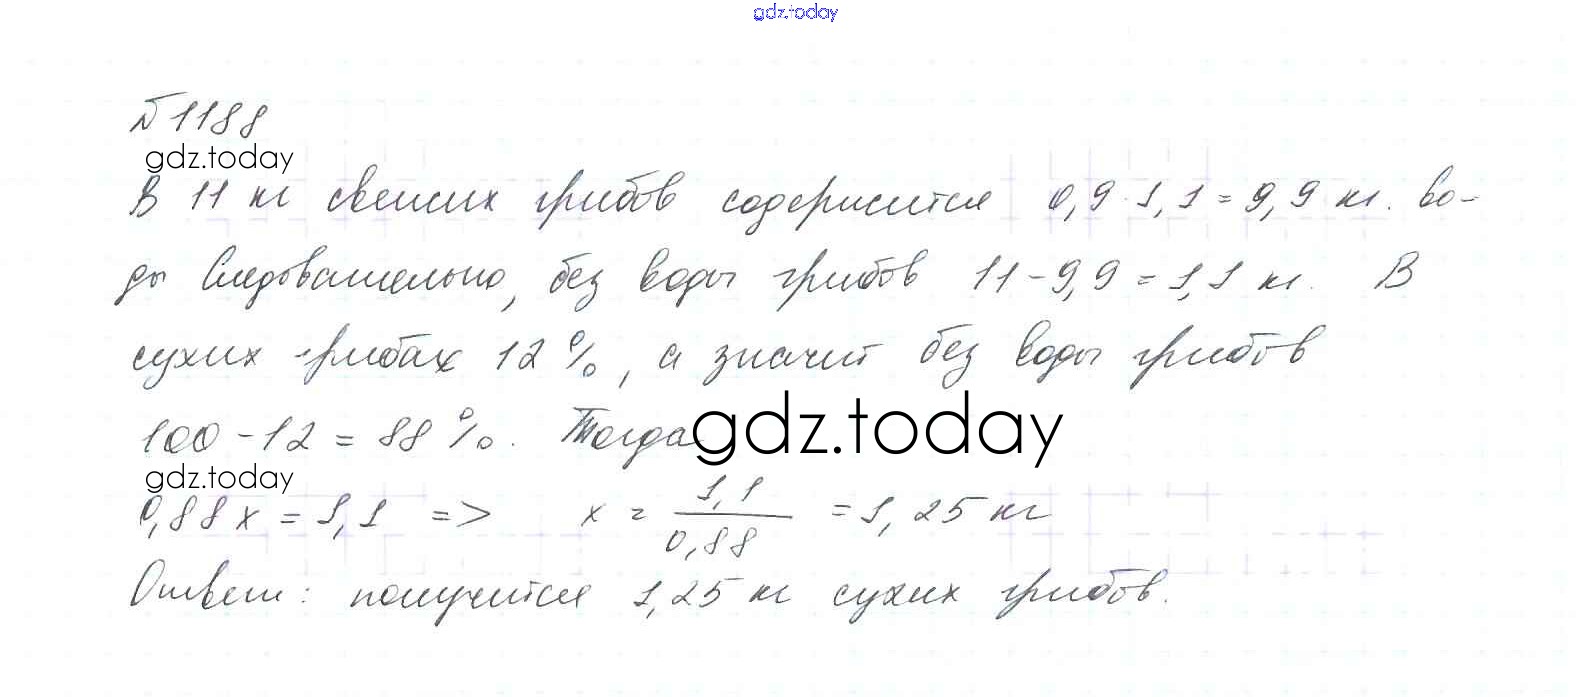 gdz.today
№1188
gdz.today
В 11 кг свежих грибов содержится 0,9·1,1=9,9 кг. во-
ды Следовательно, без воды грибов 11-9,9=1,1 кг. В
сухих грибах 12%, а значит без воды грибов
100-12=88%. Тогда
gdz.today
gdz.today
0,88x=1,1 => x = 1,1/0,88 =1,25 кг
Ответ: получится 1,25 кг сухих грибов.